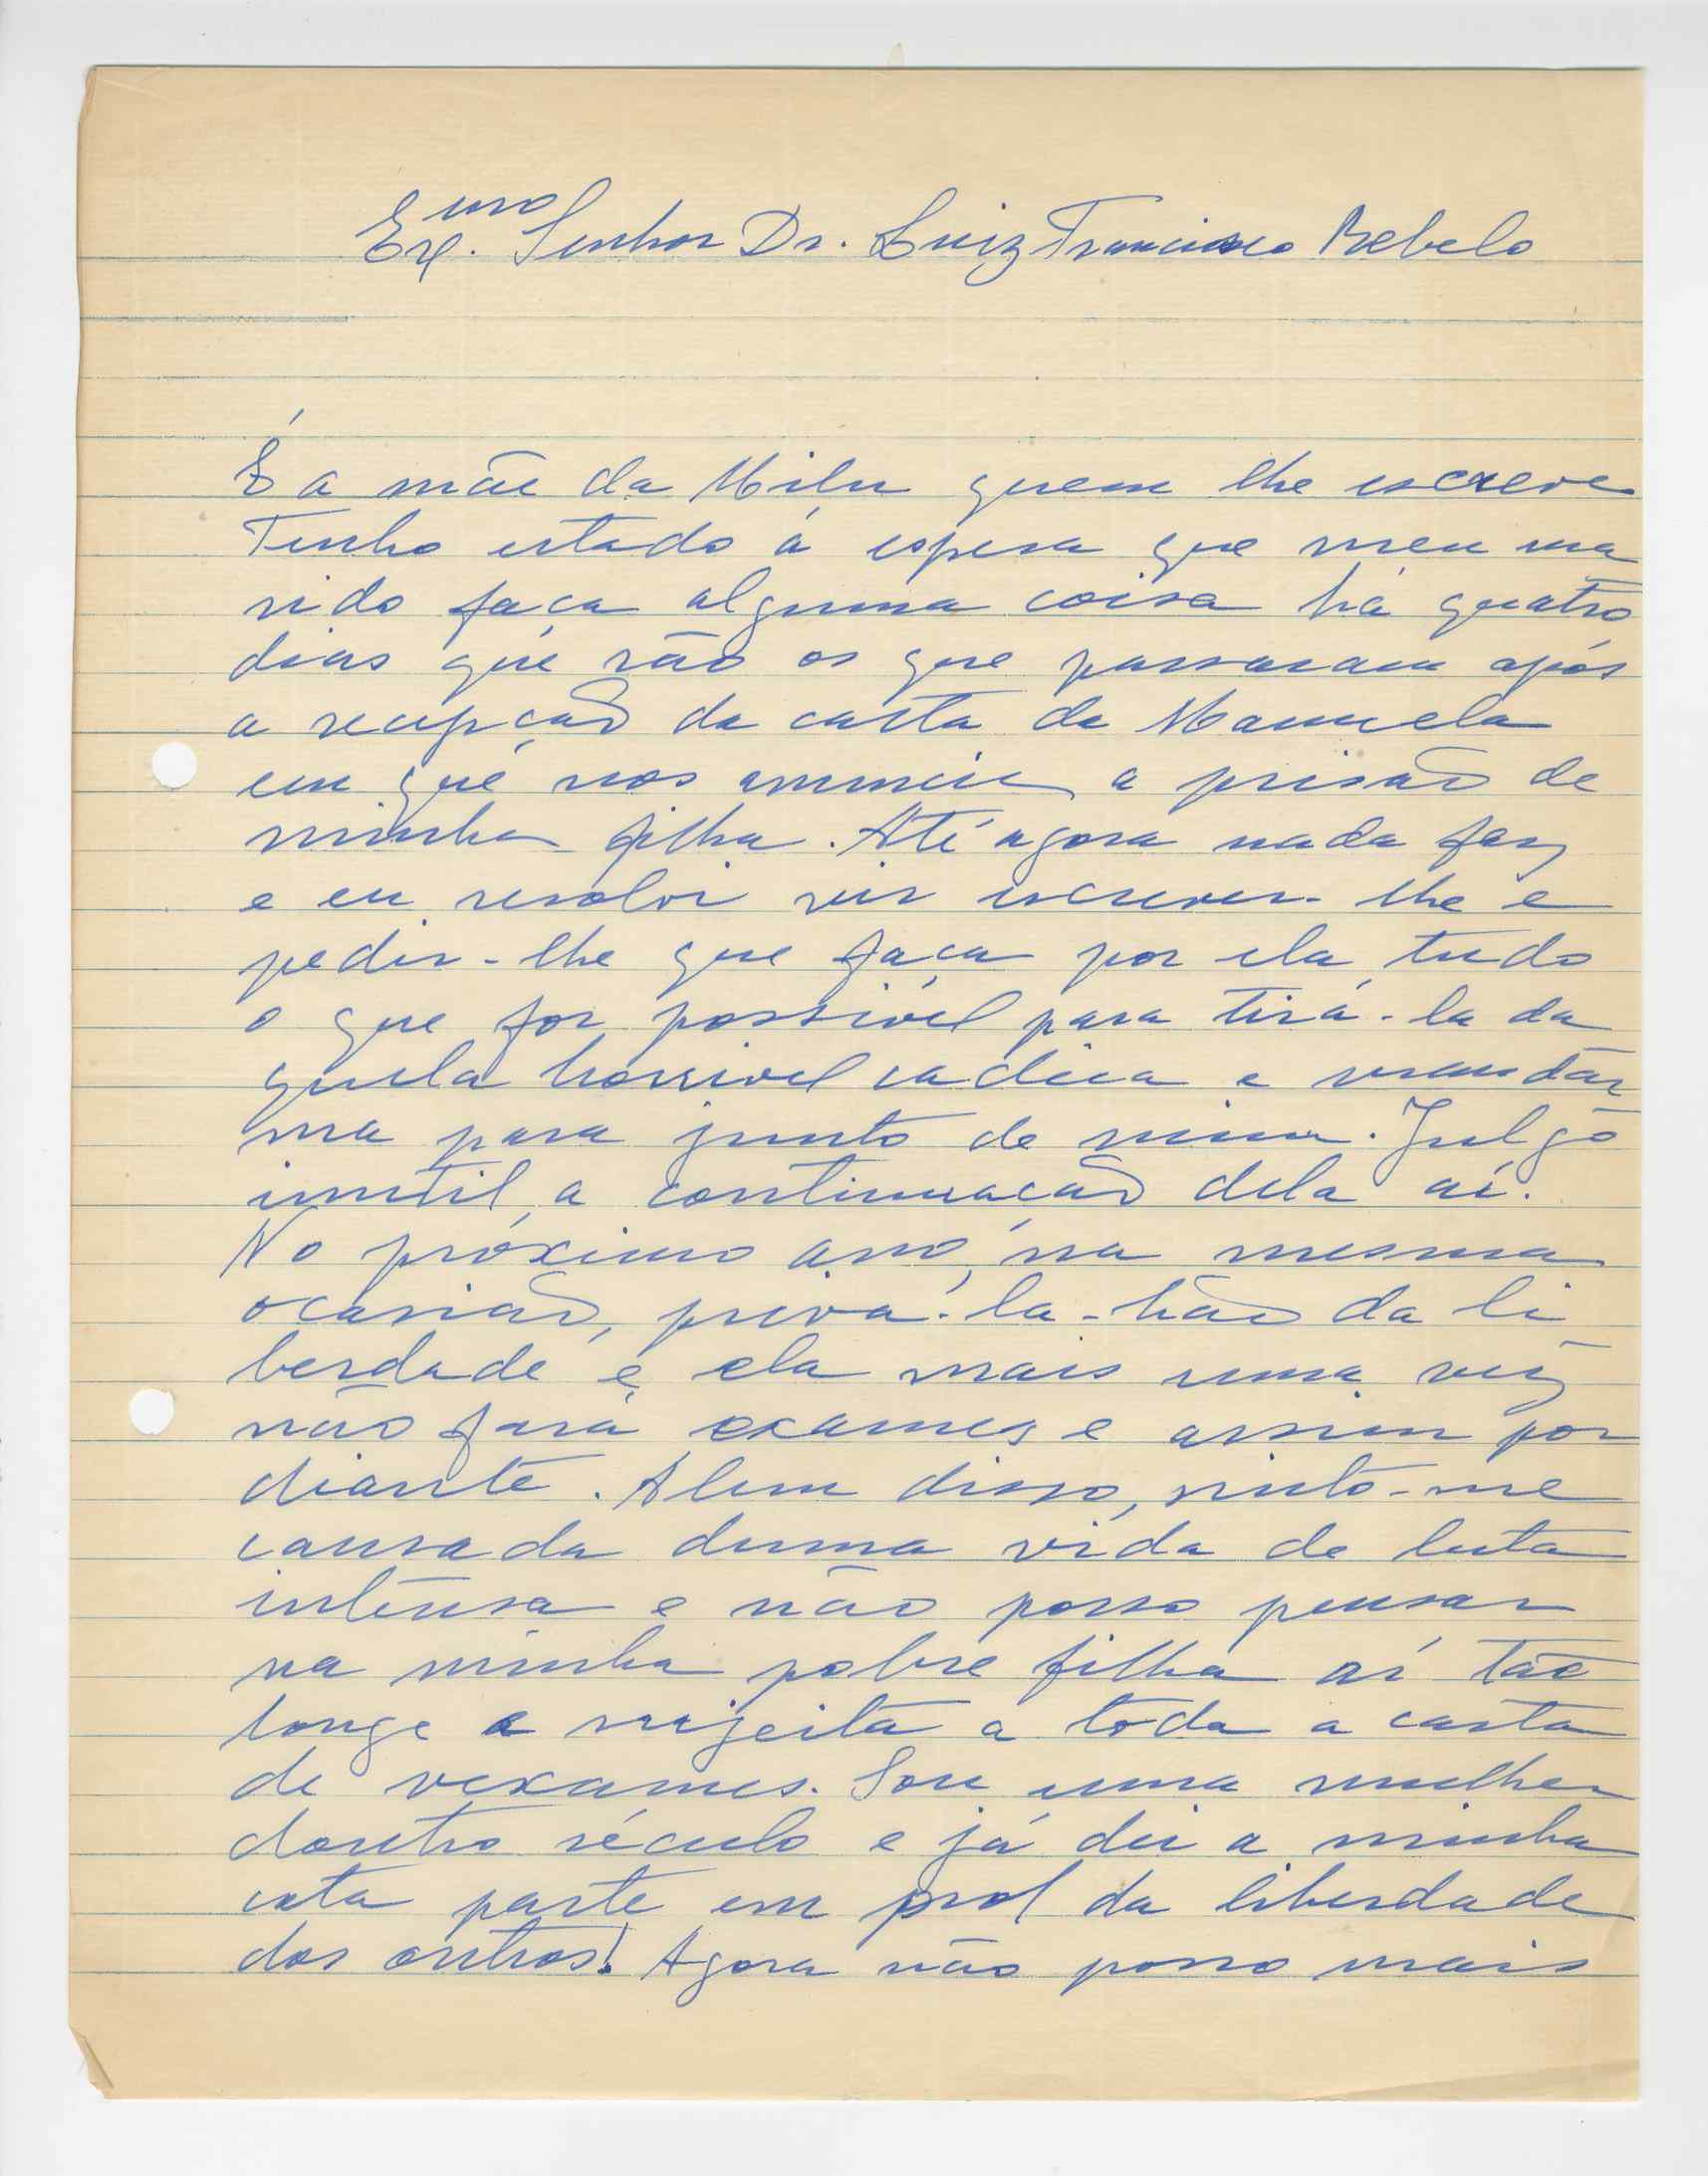 Exmo. Senhor Dr. Luiz Francisco Rebelo
É a mãe da Milu quem lhe escreve
Tenho estado á espera que meu ma
rido faça alguma coisa há quatro
dias que são os que passaram após
a recepção da carta da Manuela
em que nos anuncia a prisão de
minha filha. Até agora nada fez
e eu resolvi vir escrever-lhe e
pedir-lhe que faça por ela tudo
o que for possível para tirá-la da
quela horrivel cadeia e mandár
ma para junto de mim. Julgo
inutil a continuação dela aí.
No próximo ano, na mesma
ocasião, privá-la-hão da li
berdade e ela mais uma vez
não fará exames e assim por
diante. Alem disso, sinto-me
cansada duma vida de luta
intensa e não posso pensar
na minha pobre filha aí tão
longe e sujeita a toda a casta
de vexames. Sou uma mulher
doutro século e já dei a minha
cota parte em prol da liberdade
dos outros! Agora não posso mais